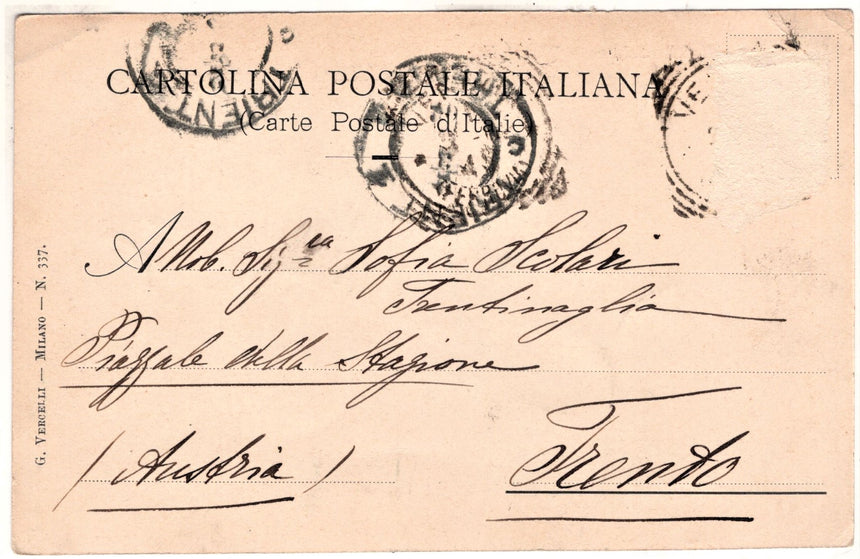 CARTOLINA POSTALE ITALIANA
(Carte Postale d'Italie)
TRIENT
VE
A Nob. Sig.ra Sofia Scolari
Trentinaglia
Piazzale della Stazione
(Austria)
Trento
G. VERCELLI — MILANO — N. 337.